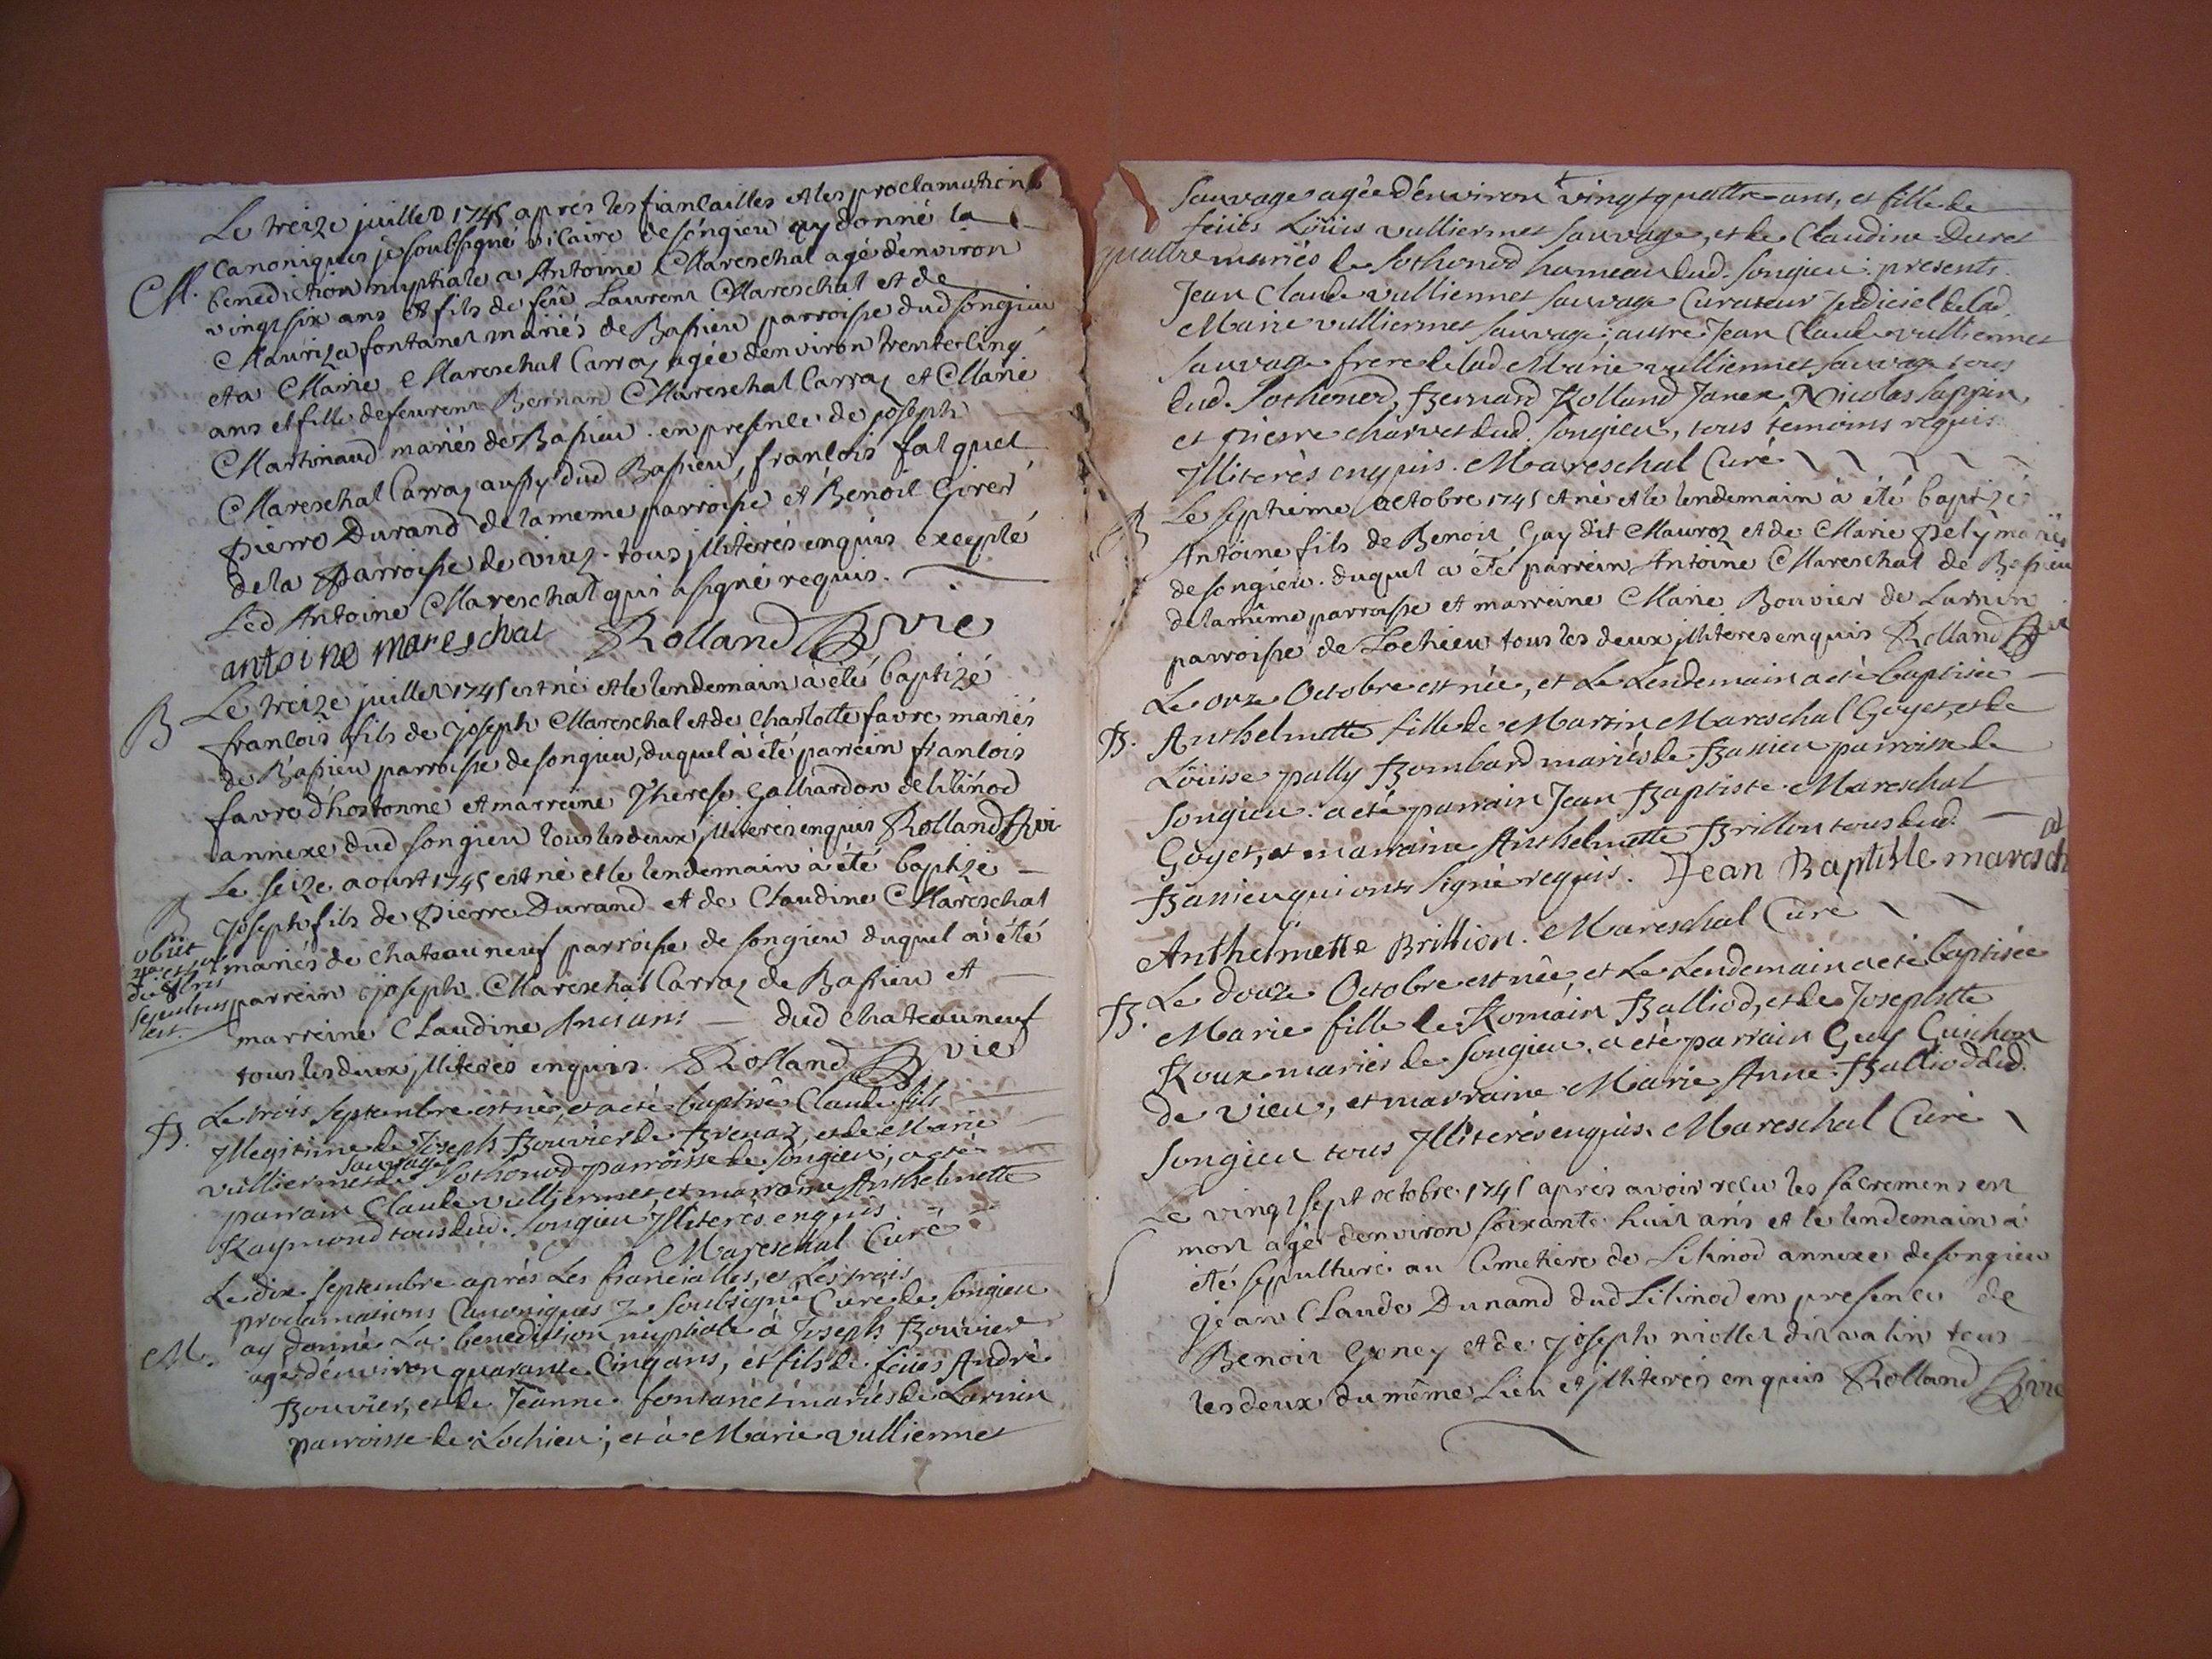 Le treize juillet 1745 apres les fiancailles et les proclamations
canoniques je soubsigné vicaire de songieu ay donné la
M.
benediction nuptiale a Antoine Mareschal agé d'environ
vingt six ans et fils de feû Laurent Mareschal et de
Mauriza fontanet mariés de Bassieu parroisse dud songieu
et a Marie Mareschal Carraz agée denviron trente cinq
ans et fille de feurent Bernard Mareschal Carraz et Marie
Martinaud mariés de Bassieu. en presence de joseph
Mareschal Carraz aussy dud Bassieu, francois falquet
pierre Durand de la meme parroisse et Benoit Giret
de la parroisse de viuz. tous jlliterés enquis excepté
Led Antoine Mareschal qui a signé requis.
antoine mareschal Rolland vic
B
Le treize juillet 1745 est né et le lendemain à été baptizé
francois fils de joseph Mareschal et de Charlotte favre mariés
de Bassieu parroisse de songieu, duquel à été parrein francois
favre d'hostonne et marreine Therese Galliardon de lilinod
annexe dud songieu tous les deux jlliterés enquis Rolland vi
Le seize aoust 1745 est né et le lendemain à été baptizé
B
joseph fils de pierre Durand et de Claudine Mareschal
obiit
mariés de chateauneuf parroisse de songieu duquel à été
sepultus
est.
parrein joseph Mareschal Carraz de Bassieu et
marreine Claudine Ancians dud chateauneuf
tous les deux jlliterés enquis. Rolland vic
B.
Le trois septembre est né, et a eté baptisé Claude fils
Illegitime de Joseph Bouvier de Brenaz, et de Marie
sauvage
vulliermet de Sothonod parroisse de songieu, a eté
parrain Claude vulliermet et marraine Anthelmette
Raymond tous dud. songieu Illiterés enquis
Mareschal Curé
Le dix septembre après Les fiancialles, et Les trois
proclamations Canoniques Je soubsigné Curé de songieu
M.
ay donné La benediction nuptiale à Joseph Bouvier
agé d'environ quarante Cinq ans, et fils de feües André
Bouvier, et de Jeanne fontanet mariés de Larnin
parroisse de Lochieu; et à Marie vulliermet
sauvage agée d'environ vingt quattre ans, et fille de
feües Loüis vulliermet sauvage, et de Claudine Duret
quattre mariés de Sothonod hameau dud. songieu: presents.
Jean Claude vulliermet sauvage Curateur Judiciel de lad.
Marie vulliermet sauvage: autre Jean Claude vulliermet
sauvage frere de lad Marie vulliermet sauvage tous
dud. Sothonod, Bernard Rolland Janex, Nicolas sappin
et pierre charvet dud. songieu, tous témoins requis
Illiterés enquis. Mareschal Curé
B
Le septieme octobre 1745 et né et le lendemain à été baptizé
Antoine fils de Benoit Guy dit Mauroz et de Marie pely mariés
de songieu. duquel a été parrein Antoine Mareschal de Bassieu
de la même parroisse et marreine Marie Bouvier de Larnin
parroisse de Lochieu tous les deux jlliteres enquis Rolland vi
Le onze Octobre est née, et Le Lendemain a eté baptisée
B.
Anthelmette fille de Martin Mareschal Goyet, et de
Loüise pally Bombard mariés de Bassieu parroisse de
songieu. a eté parrain Jean Baptiste Mareschal
Goyet, et marraine Anthelmette Brillion tous dud.
Bassieu qui ont signé requis. Jean Baptiste maresch
al
Anthelmette Brillion. Mareschal Curé
B.
Le douze Octobre est née, et Le Lendemain a eté baptisée
Marie fille de Romain Balliod, et de Josephtte
Roux mariés de songieu. a eté parrain Guy Guichon
de vieu, et marraine Marie Anne Balliod dud.
songieu tous Illiterés enquis. Mareschal Curé
Le vingt sept octobre 1745 après avoir recu les sacremens en
S
mort agé denviron soixante huit ans et le lendemain à
été sepulturé au cimetiere de Lilinod annexe de songieu
jean Claude Dunand dud Lilinod en presence de
Benoit Geney et de joseph niollet dit valin tous
les deux du même Lieu et jlliterés enquis Rolland vic